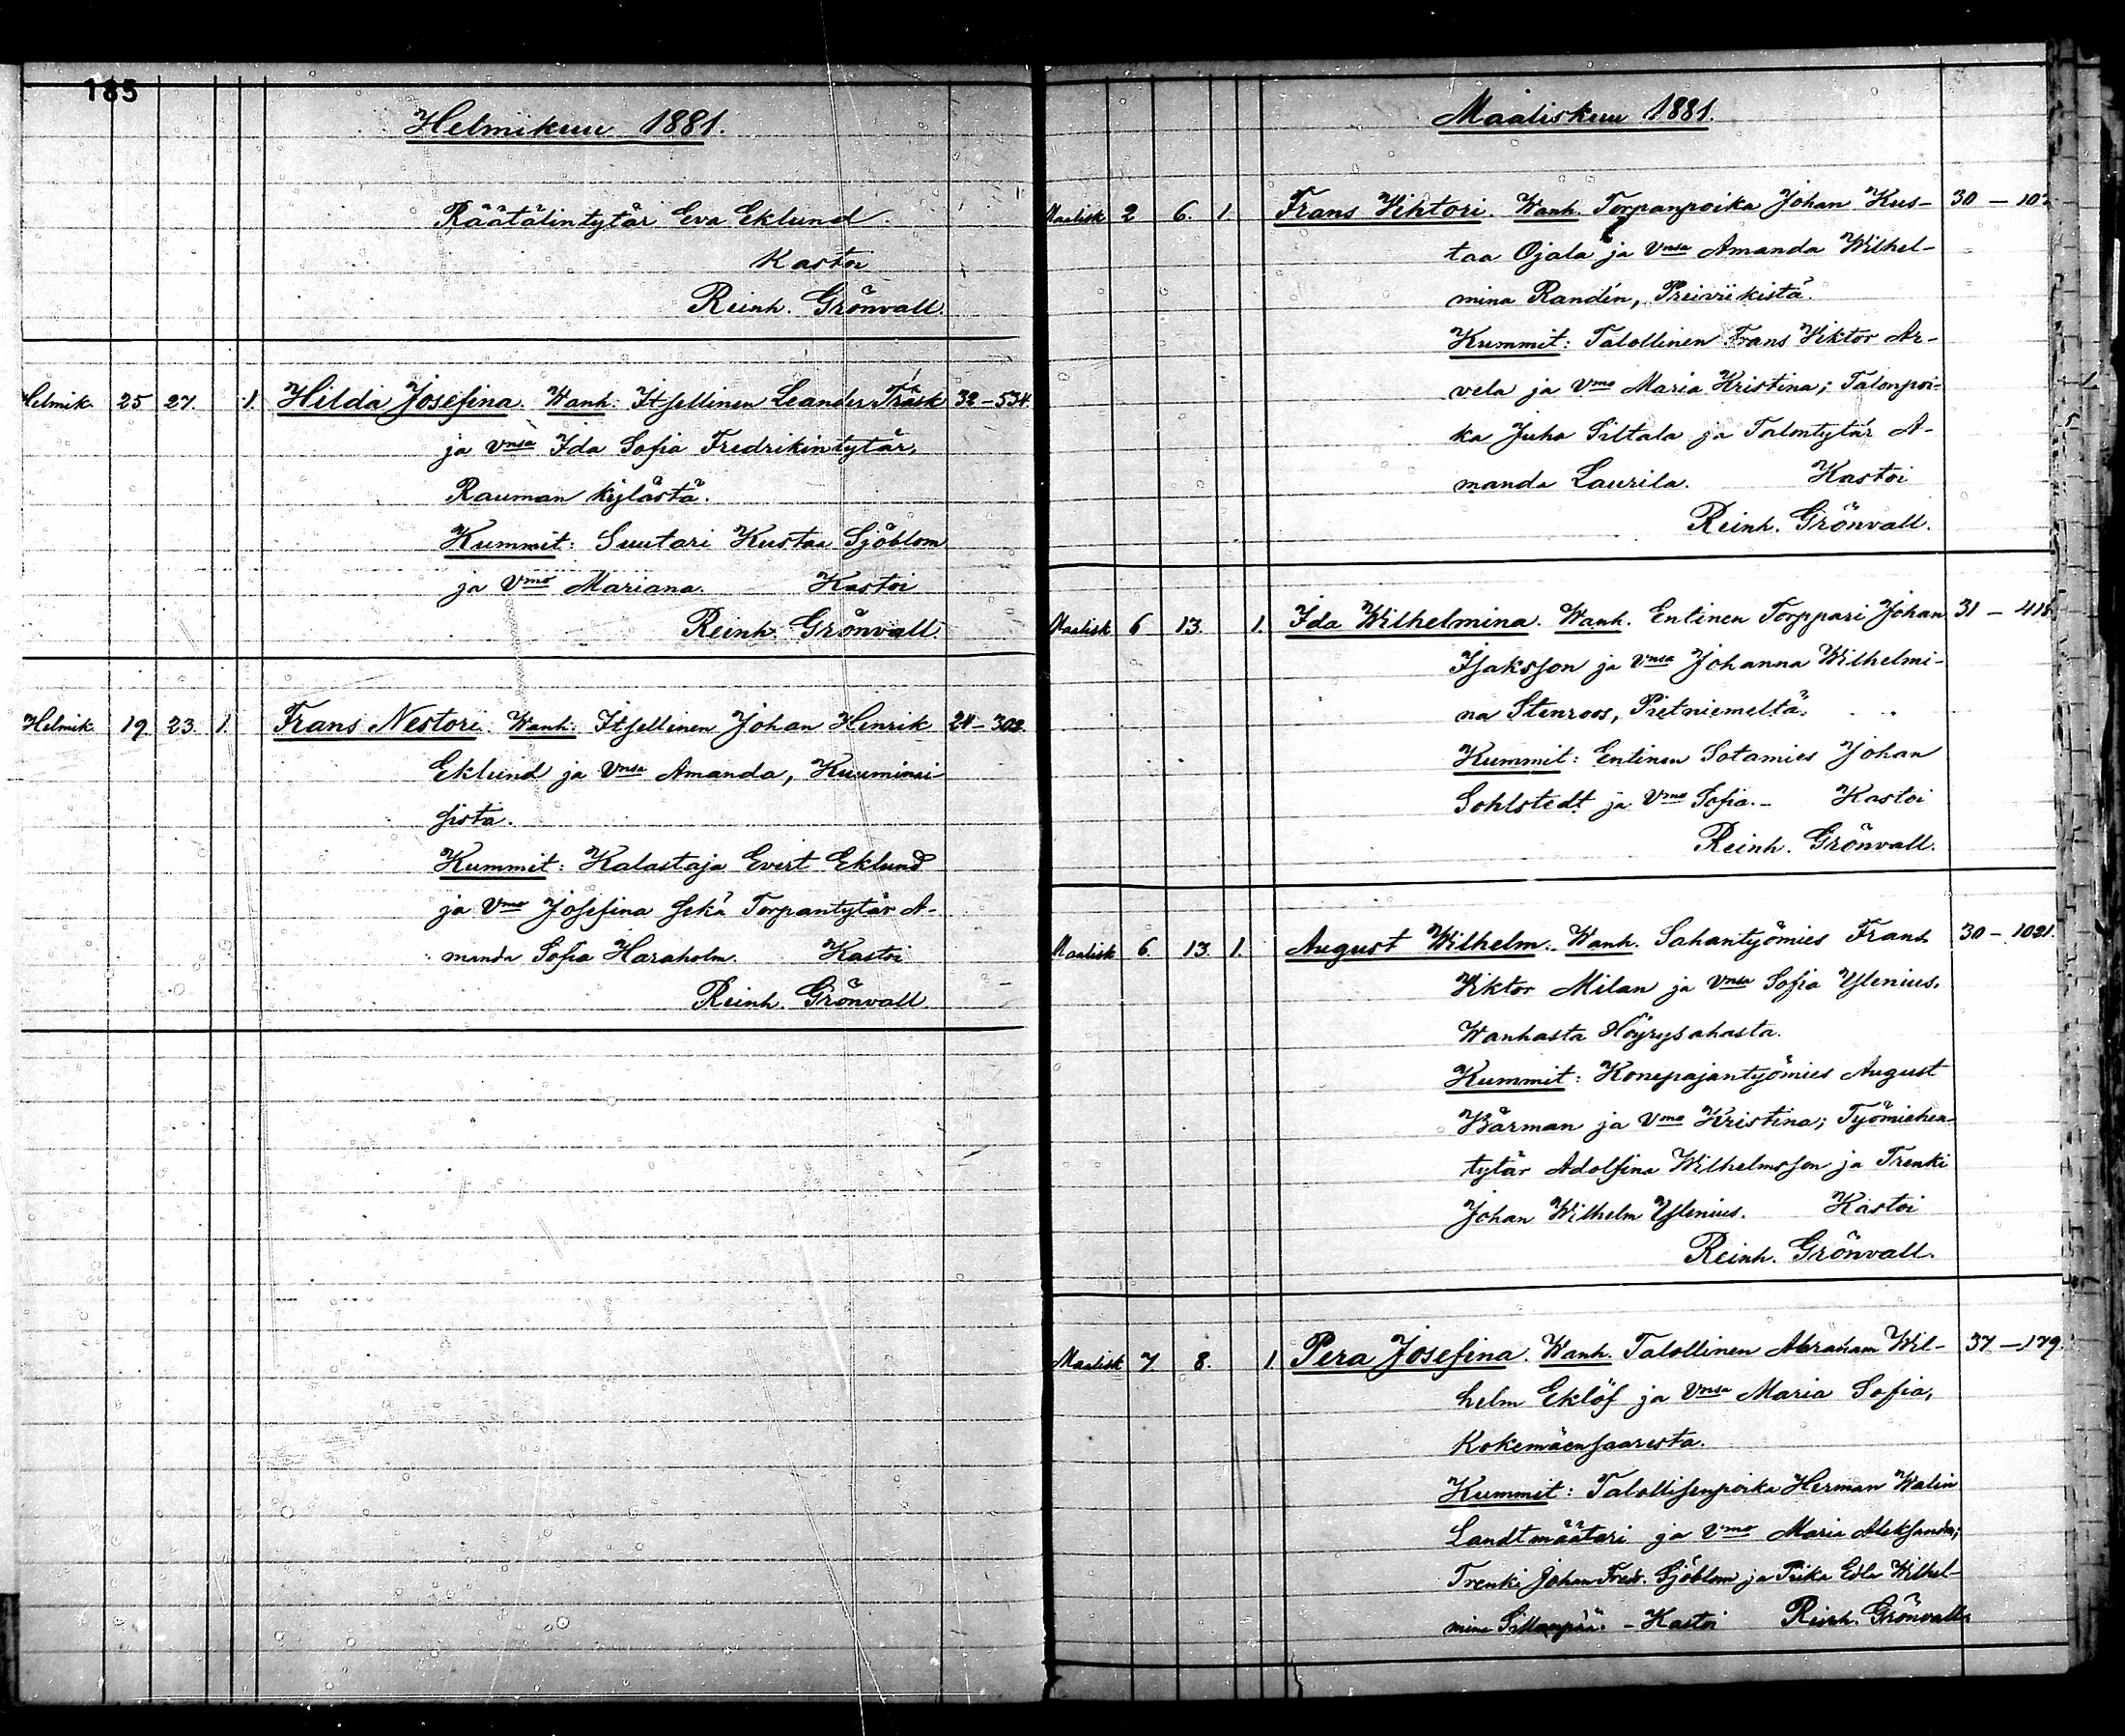 185
Helmikuu 1881.
Räätälintytär Eva Eklund.
Kastoi
Reinh. Grönvall.
Helmik. 25 27. 1. Hilda Josefina. Wanh: Itsellinen Leander Träsk 32-534.
ja Vnsa Ida Sofia Fredrikintytär,
Rauman kylästä.
Kummit: Suutari Kustaa Sjöblom
ja Vmo Mariana. Kastoi
Reinh. Grönvall
Helmik. 19. 23. 1. Frans Nestori. Wanh: Itsellinen Johan Henrik 24-302.
Eklund ja Vnsa Amanda, Kuuminai-
sista.
Kummit: Kalastaja Evert Eklund
ja Vmo Josefina sekä Torpantytär A-
manda Sofia Haraholm. Kastoi
Reinh. Grönvall
Maaliskuu 1881.
Maalisk 2 6. 1. Frans Wihtori. Wanh. Torpanpoika Johan Kus- 30 - 10
taa Ojala ja Vnsa Amanda Wilhel-
mina Randén, Preiviikistä.
Kummit: Talollinen Frans Wiktor Ar-
vela ja Vmo Maria Kristina; Talonpoi-
ka Juho Siltala ja Talontytär A-
manda Laurila. Kastoi
Reinh. Grönvall.
Maalisk 6 13. 1. Ida Wilhelmina. Wanh. Entinen Torppari Johan 31 - 418.
Isaksson ja Vnsa Johanna Wilhelmi-
na Stenroos, Pietniemeltä.
Kummit: Entinen Sotamies Johan
Sohlstedt ja Vmo Sofia. - Kastoi
Reinh. Grönvall.
Maalisk 6. 13. 1. August Wilhelm. Wanh. Sahantyömies Frans 30 - 1021.
Wiktor Milan ja Vnsa Sofia Ylenius.
Wanhasta Höyrysahasta.
Kummit: Konepajantyömies August
Wärman ja Vmo Kristina; Työmiehen-
tytär Adolfina Wilhelmsson ja Trenki
Johan Wilhelm Ylenius. Kastoi
Reinh. Grönvall.
Maalisk 7. 8. 1 Pera Josefina. Wanh. Talollinen Abraham Wil- 37 - 179.
helm Eklöf ja Vnsa Maria Sofia,
Kokemäensaaresta.
Kummit: Talollisenpoika Herman Walin
Landtmäätari ja Vmo Maria Aleksandra;
Trenki Johan Fredr. Sjöblom ja Piika Edla Wilhel-
mina Sillanpää. - Kastoi Reinh. Grönvall.